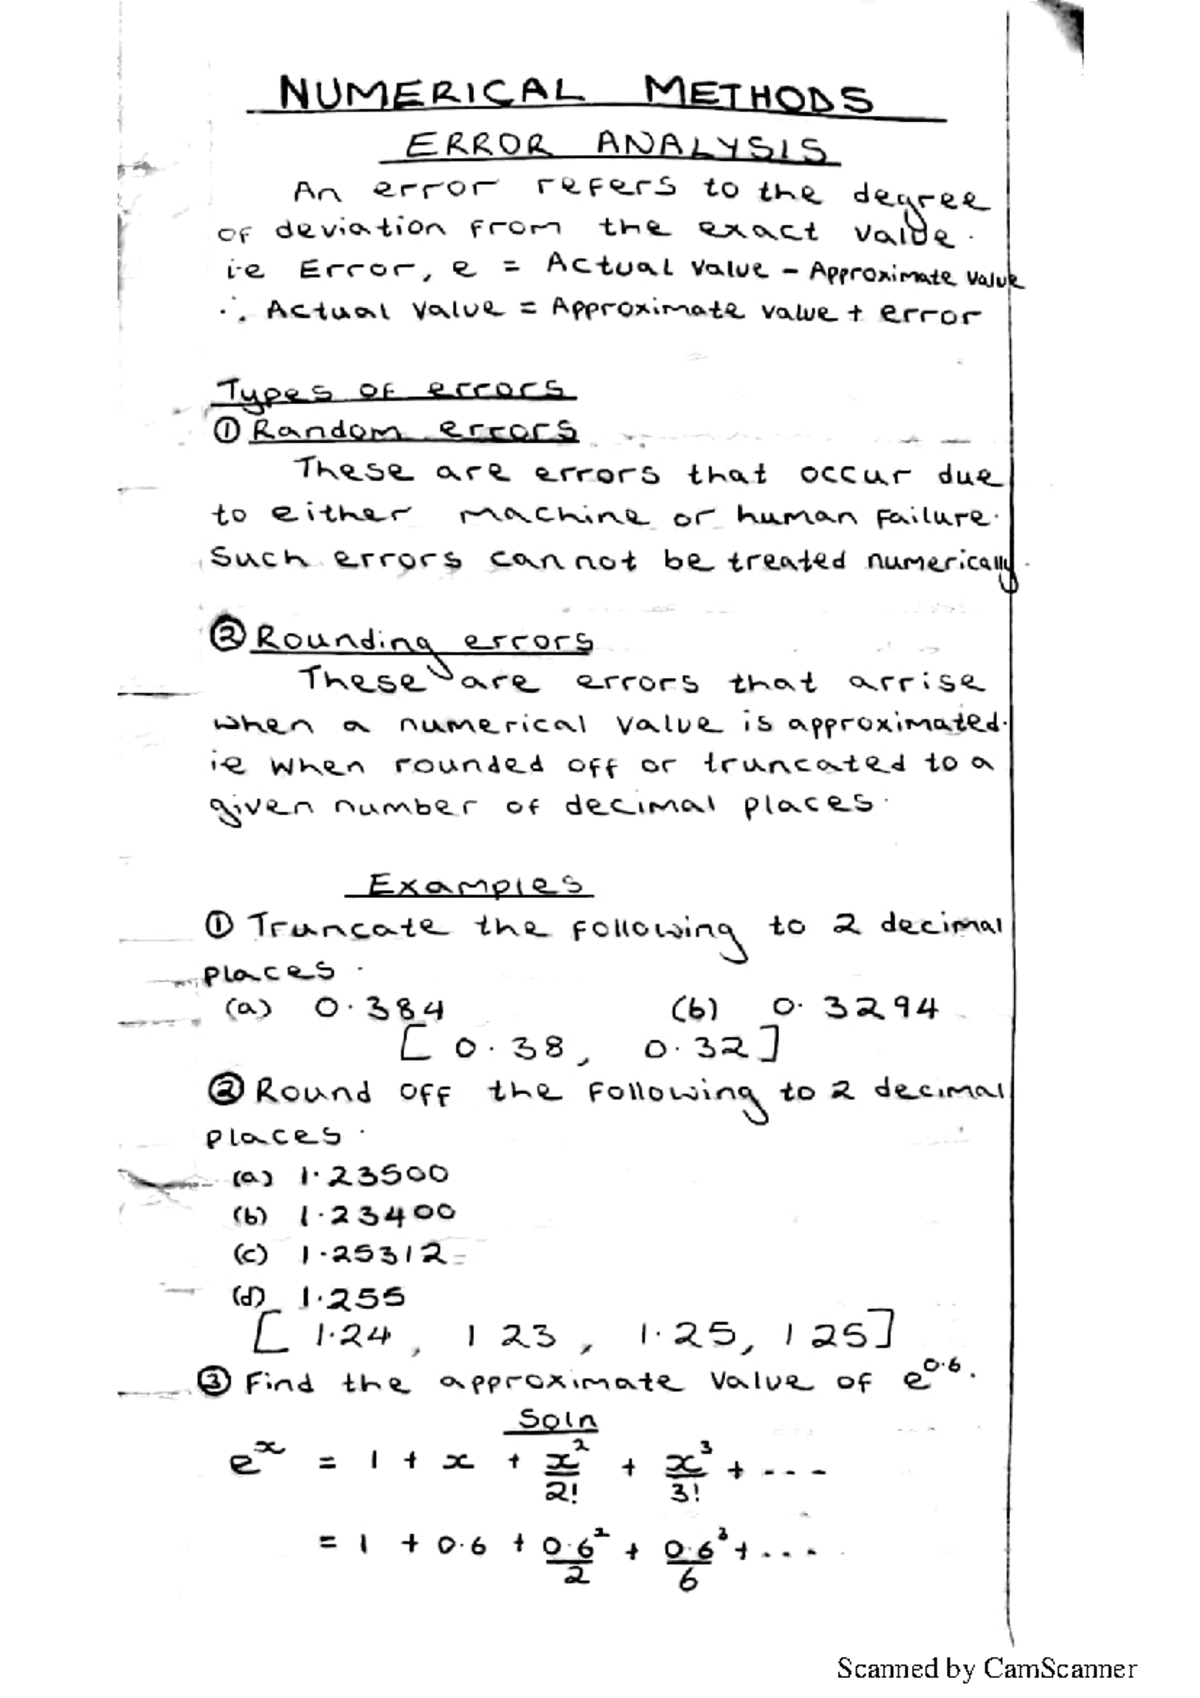 NUMERICAL METHODS
ERROR ANALYSIS
An error refers to the degree
of deviation from the exact value.
i.e Error, e = Actual value - Approximate value
∴ Actual value = Approximate value + error
Types of errors
① Random errors
These are errors that occur due
to either machine or human failure.
Such errors cannot be treated numerically.
② Rounding errors
These are errors that arrise
when a numerical value is approximated.
ie when rounded off or truncated to a
given number of decimal places.
Examples
① Truncate the following to 2 decimal
places.
(a) 0.384 (b) 0.3294
[0.38, 0.32]
② Round off the following to 2 decimal
places.
(a) 1.23500
(b) 1.23400
(c) 1.25312
(d) 1.255
[1.24, 1 23, 1.25, 1 25]
③ Find the approximate value of e^0.6.
Soln
e^x = 1 + x + x^2/2! + x^3/3! + ---
= 1 + 0.6 + 0.6^2/2 + 0.6^3/6 + ....
Scanned by CamScanner